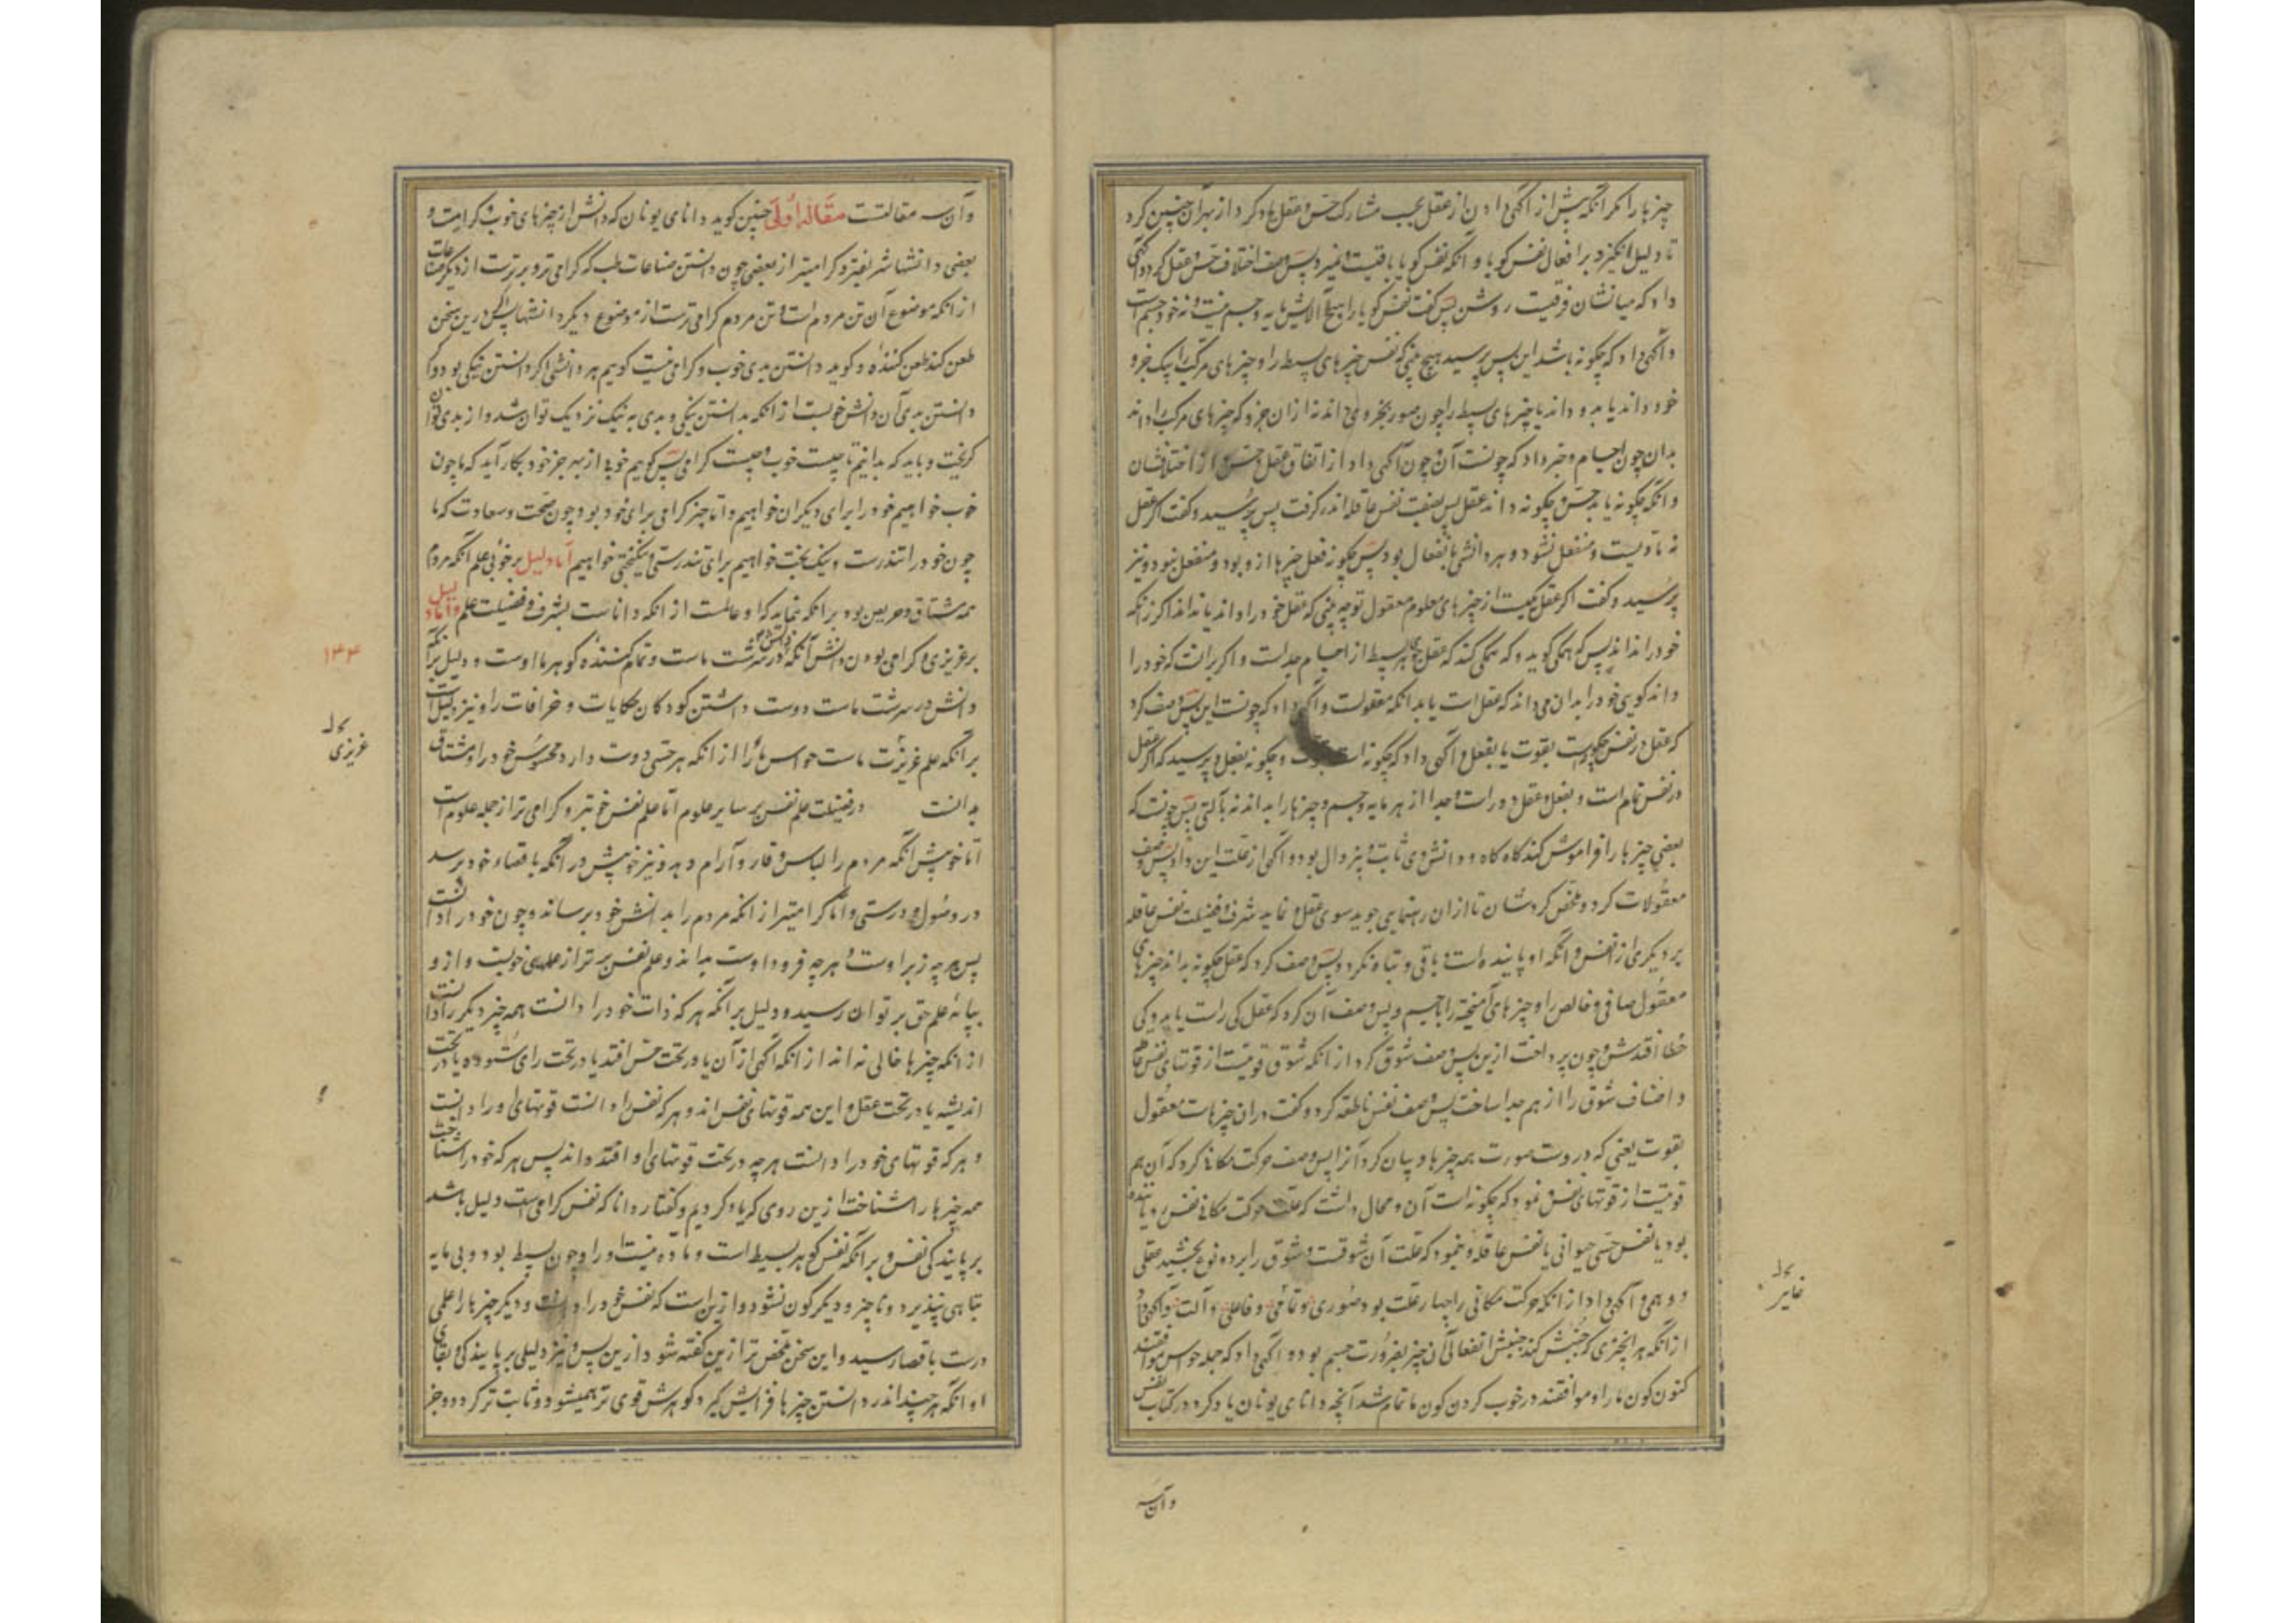 چیزها را مکر آنکه پیش از آگهی دادن از عقل بحسب مشارکت حس و عقل یاد کرد و از بهر آن چنین کرد
تا دلیل انگیزد بر افعال نفس گویا و آنکه نفس گویا باقیست و نمیرد پس وصف اختلاف حس و عقل کرد و آگهی
داد که میانشان فرقیست روشن پس گفت نفس گویا را هیچ آلایش مایه و جسم نیست و نه خود جسم است
و آگهی داد که چگونه باشد این پس پرسید هیچ بینی که نفس چیزهای بسیط را و چیزهای مرکب را بیک جزو
خود داند یا بدو و داند یا چیزهای بسیط را چون صور بجزوی داند نه از آن جزو که چیزهای مرکب را داند
بدان چون اجسام و خبر داد که چونست آن و چون آگهی داد از اتفاق عقل و حس و از اختلافشان
و آنکه چگونه یابد حس و چگونه داند عقل پس بصفت نفس عاقله اندر گرفت پس پرسید و گفت اگر عقل
نه مادیست و منفعل نشود و هر دانشی بانفعال بود پس چگونه فعل چیزها ازو بود و منفعل نبود و نیز
پرسید و گفت اگر عقل یکیست از چیزهای معلوم معقول تو چه بینی که عقل خود را داند یا نداند اگر زانکه
خود را نداند پس که همی گوید و که همی کند که عقل جوهر بسیط از اجسام جداست و اگر بر آنست که خود را
داند گویی خود را بدان می‌داند که عقل است یا بدانکه معقولست و آگهی داد که چونست این پس وصف کرد
که عقل در نفس چگونه است بقوت یا بفعل و آگهی داد که چگونه است بقوت و چگونه بفعل و پرسید که اگر عقل
در نفس تمام است و بفعل و عقل دور است و جدا از هر مایه و جسم و چیزها را بداند نه بآلتی پس چونست که
بعضی چیزها را فراموش کند گاه گاه و دانش وی ثابت و بی‌زوال بود و آگهی از علت این داد پس وصف
معقولات کرد و ملخص کردشان تا از آن رهنمایی جوید سوی عقل و نماید شرف و فضیلت نفس عاقله
بر دیگری از نفس و آنکه او پاینده است و باقی و تباه نگردد پس وصف کرد که عقل چگونه بداند چیزهای
معقول صافی و خالص را و چیزهای آمیخته را باجسم و پس وصف آن کرد که عقل کی راست یابد و کی
خطا افتدش و چون پرداخت ازین پس وصف شوق کرد از آنکه شوق قویست از قوتهای نفس عاقله
و اصناف شوق را از هم جدا ساخت پس وصف نفس ناطقه کرد و گفت در آن چیزهاست معقول
بقوت یعنی که دروست صورت همه چیزها و بیان کرد آنرا پس وصف حرکت مکانی کرد که آن هم
قویست از قوتهای نفس نمود که چگونه است آن و محال داشت که علت حرکت مکانی نفس رویاننده
بود یا نفس حسی حیوانی یا نفس عاقله و نمود که علت آن شوقست و شوق را بر دو نوع بخشید عقلی
و وهمی و آگهی داد از آنکه حرکت مکانی را چهار علت بود صوری و تمامی و فاعلی و آلت و آگهی داد
از آنکه هر آنچیزی که جنبش کند جنبش انفعالی آن چیز بضرورت جسم بود و آگهی داد که جمله حواس موافقند
کنون کون ما را و موافقند در خوب کردن کون ما تمام شد آنچه دانای یونان یاد کرد در کتاب نفس
وآن سه
بدل
غایر
وآن سه مقالتست مقاله اولی چنین گوید دانای یونان که دانش از چیزهای خوب و گرامیست و
بعضی دانشها شریفتر و گرامیتر از بعضی چون دانستن صناعات طب که گرامی‌تر و برترست از دیگر صناعات
از آنکه موضوع آن تن مردم است و تن مردم گرامی‌ترست از موضوع دیگر دانشها پس اگر درین سخن
طعن کند طعن کننده و گوید دانستن بدی خوب و گرامی نیست گوییم هر دانشی اگر دانستن نیکی بود و اگر
دانستن بدی آن دانش خوبست از آنکه بدانستن نیکی و بدی به نیک نزدیک توان شد و از بدی توان
گریخت و باید که بدانیم تا چیست خوب و چیست گرامی پس گوییم خوب از بهر جز خود بکار آید که ما چون
خوب خواهیم خود را برای دیگران خواهیم و اما چیز گرامی برای خود بود چون صحت و سعادت که ما
چون خود را تندرست و نیک بخت خواهیم برای تندرستی و نیکبختی خواهیم اما دلیل بر خوبی علم آنکه مردم
همه مشتاق و حریص بود بر آنکه نماید که او عالمست از آنکه داناست بشرف و فضیلت علم و اما دلیل
بر عزیزی و گرامی بودن دانش آنکه دانش در سرشت ماست و تمام کننده گوهر ما اوست و دلیل بر آنکه
دانش در سرشت ماست دوست داشتن کودکان حکایات و خرافات را و نیز دلیل است
بر آنکه علم غریزت ماست حواس ما را از آنکه هر حسی دوست دارد محسوس خود را و مشتاق
بدانست در فضیلت علم نفس بر سایر علوم اما علم نفس خوبتر و گرامی‌تر از جمله علوم است
اما خوبیش آنکه مردم را لباس وقار و آرام دهد و نیز خوبیش در آنکه باقصاء خود برسد
در وصول و درستی و اما گرامیتر از آنکه مردم را بدانش خود برساند و چون خود را دانست
پس هرچه زبر اوست و هرچه فرود اوست بداند و علم نفس برتر از علمهای خوبیست و ازو
بپایه علم حق برتوان رسید و دلیل بر آنکه هر که ذات خود را دانست همه چیز دیگر را دانست
از آنکه چیزها خالی نه‌اند از آنکه آگهی از آن یا در تحت حس افتد یا در تحت رای ستوده یا در تحت
اندیشه یا در تحت عقل و این همه قوتهای نفس‌اند و هر که نفس را دانست قوتهای او را دانست
و هر که قوتهای خود را دانست هرچه در تحت قوتهای او افتد داند پس هر که خود را شناخت
همه چیزها را شناخت ازین روی که یاد کردیم و گفتار دانا که نفس گرامی است دلیل باشد
بر پایندگی نفس و بر آنکه نفس گوهر بسیط است و ماده نیست او را و چون بسیط بود و بی مایه
تباهی نپذیرد و ناچیز و دیگرگون نشود و ازین است که نفس خود را دانست و دیگر چیزها را علمی
درست باقصا رسید و این سخن ملخص‌تر ازین گفته شود ازین پس و نیز دلیلی بر پایندگی و بقای
او آنکه هر چند اندر دانستن چیزها فزایش گیرد گوهرش قوی‌تر همیشود و ثابت‌تر گردد و جز
۱۳۴
بدل
غریزی